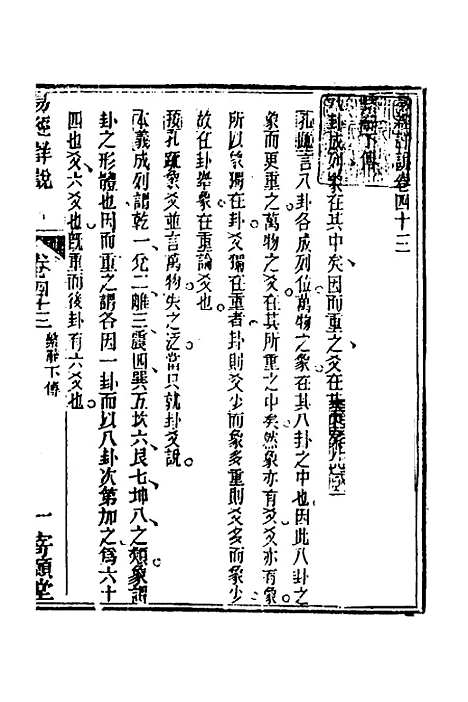 易經詳說卷四十三
繫辭下傳
八卦成列象在其中矣因而重之爻在其
孔疏言八卦各成列位萬物之象在其八卦之中也因此八卦之
象而更重之萬物之爻在其所重之中矣然象亦有爻爻亦有象
所以象獨在卦爻獨在重者卦則爻少而象多重則爻多而象少
故在卦舉象在重論爻也
按孔疏象爻並言萬物失之泛當只就卦爻說
本義成列謂乾一兌二離三震四巽五坎六艮七坤八之類象謂
卦之形體也因而重之謂各因一卦而以八卦次第加之為六十
四也爻六爻也旣重而後卦有六爻也
易經詳說
卷四十三
繫辭下傳
一
寄願堂